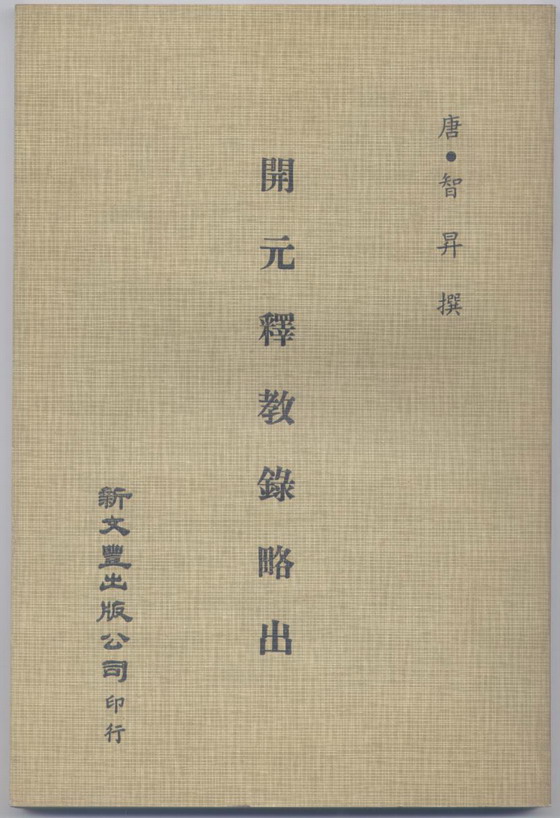 唐•智昇撰
開元釋教錄略出
新文豐出版公司印行